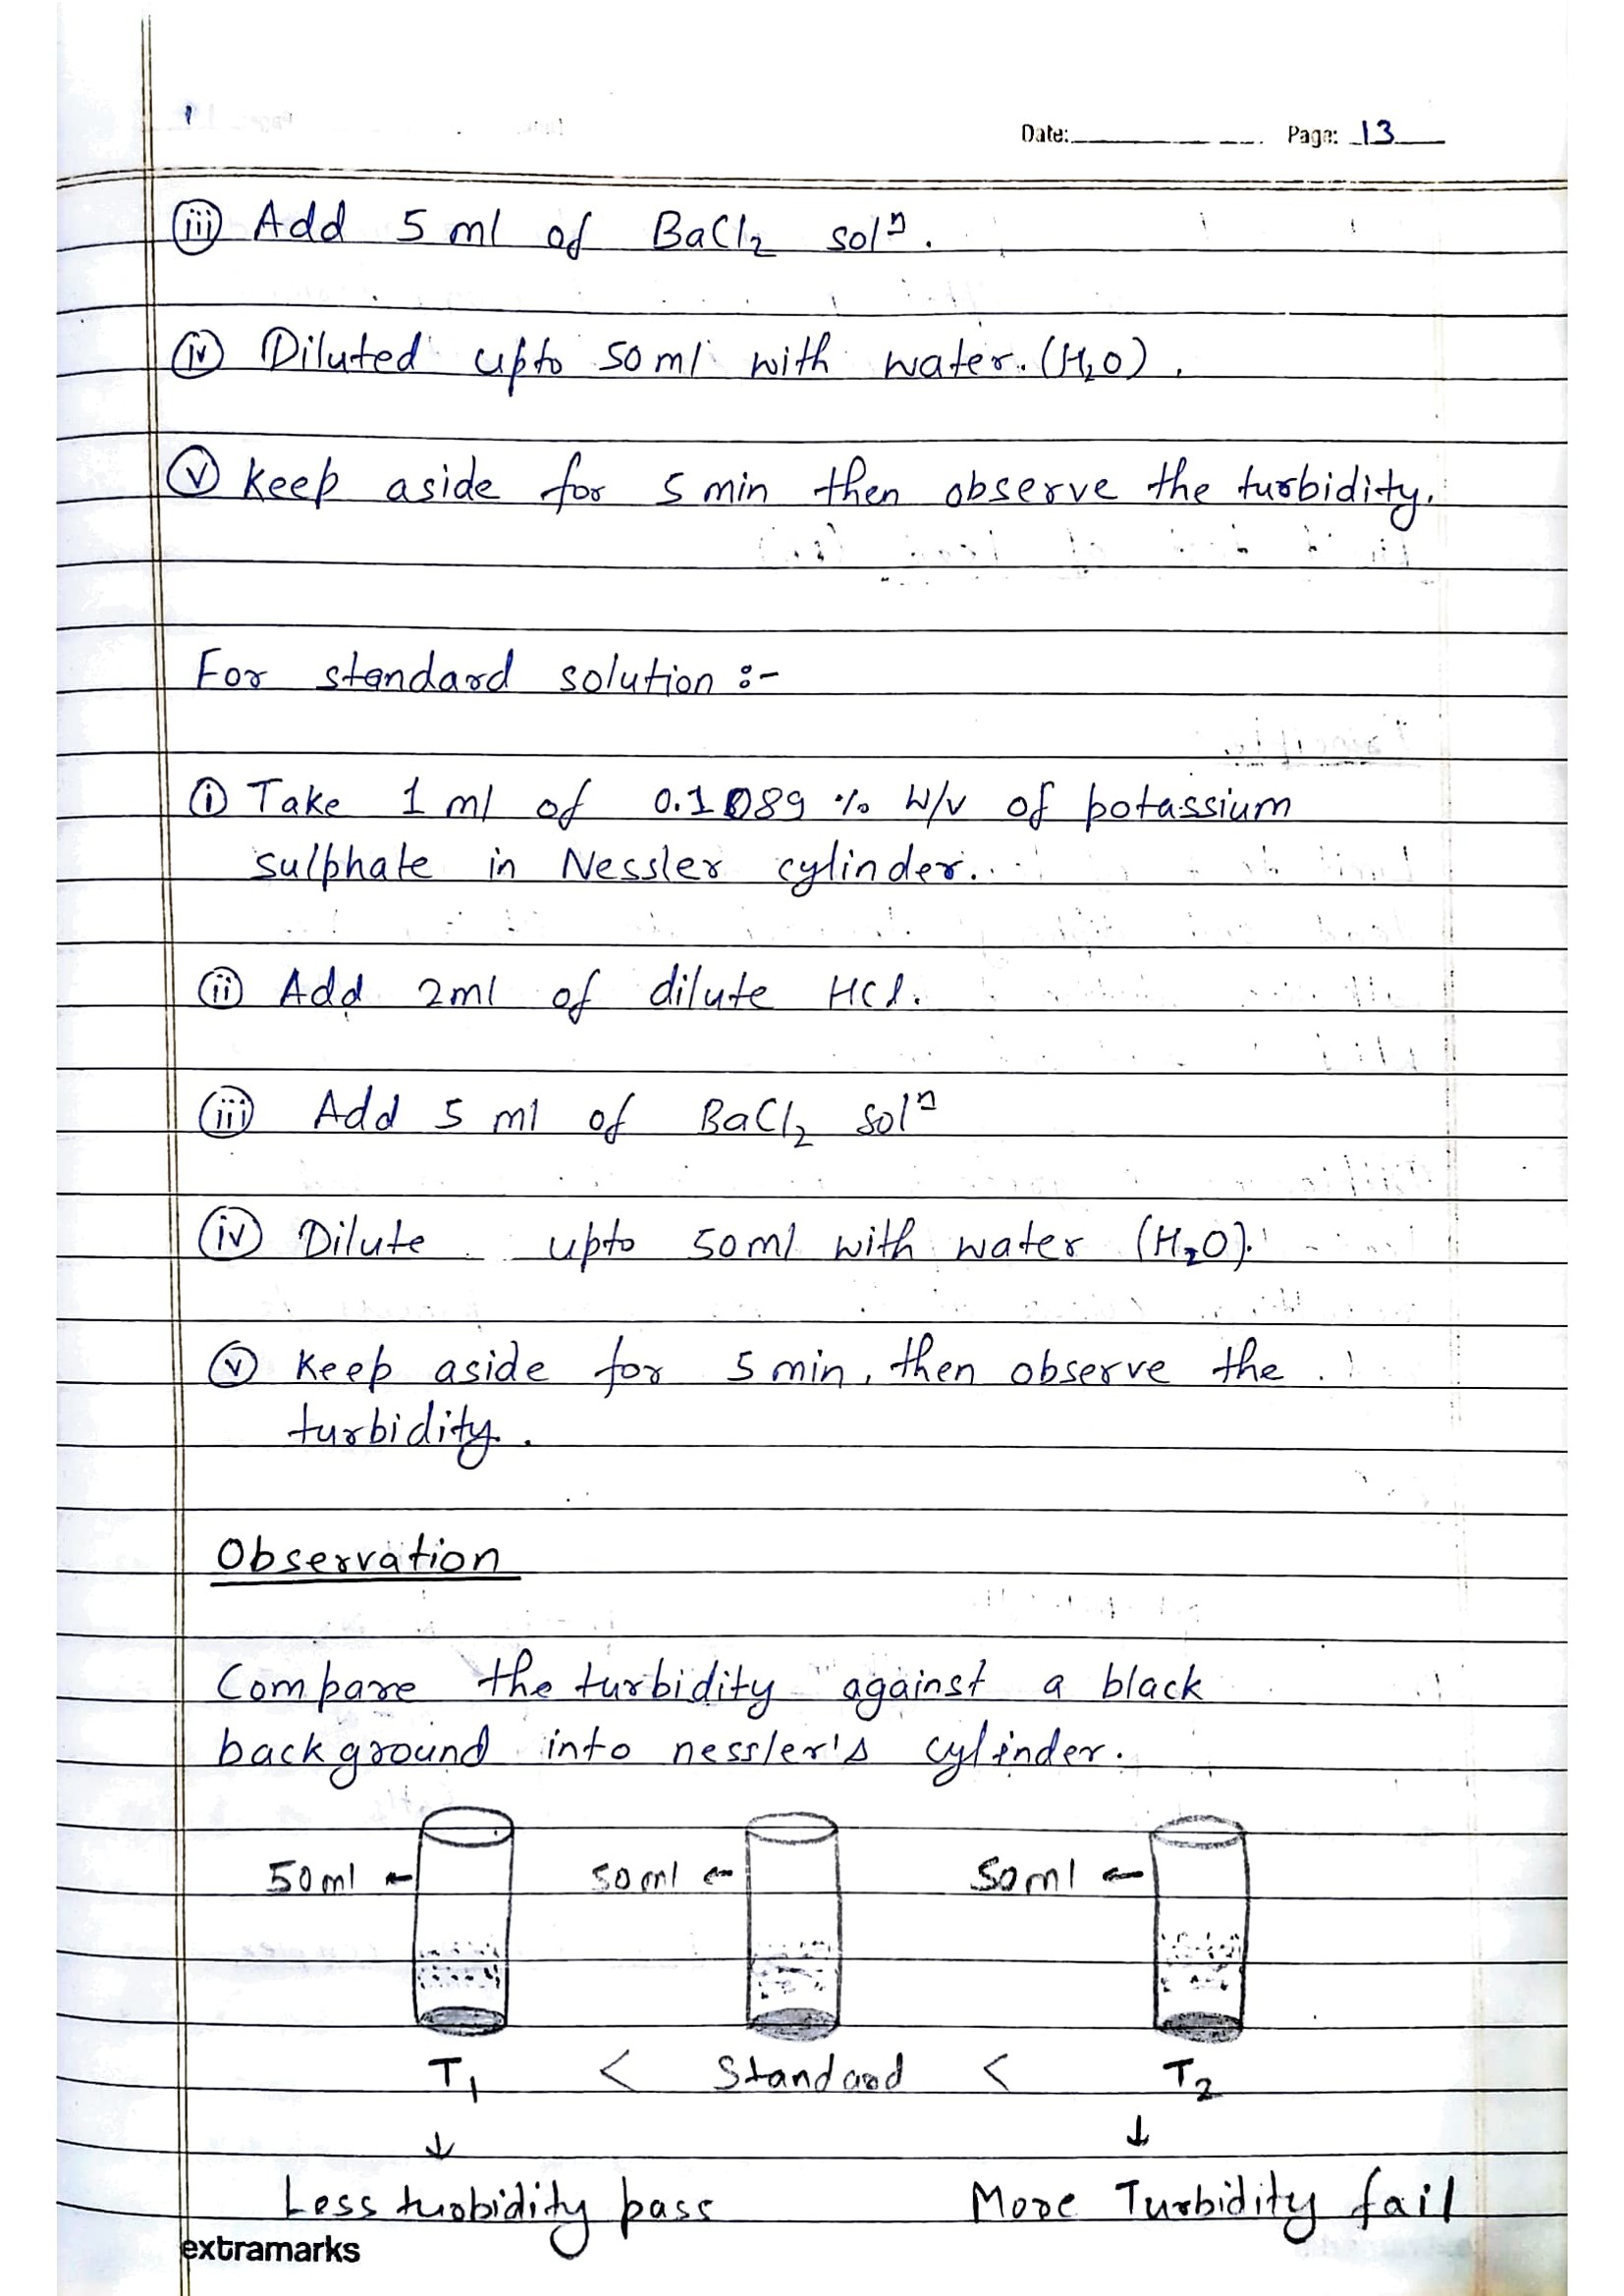 Date: Page: 13
(iii) Add 5 ml of BaCl₂ solⁿ.
(iv) Diluted upto 50 ml with water. (H₂O).
(v) Keep aside for 5 min then observe the turbidity.
For standard solution :-
(i) Take 1 ml of 0.1089 % w/v of potassium
sulphate in Nessler cylinder.
(ii) Add 2ml of dilute HCl.
(iii) Add 5 ml of BaCl₂ solⁿ
(iv) Dilute upto 50ml with water (H₂O).
(v) Keep aside for 5 min, then observe the
turbidity.
Observation
Compare the turbidity against a black
background into nessler's cylinder.
50ml ← 50ml ← 50ml ←
T₁ < Standard < T₂
↓ ↓
Less turbidity pass More Turbidity fail
extramarks